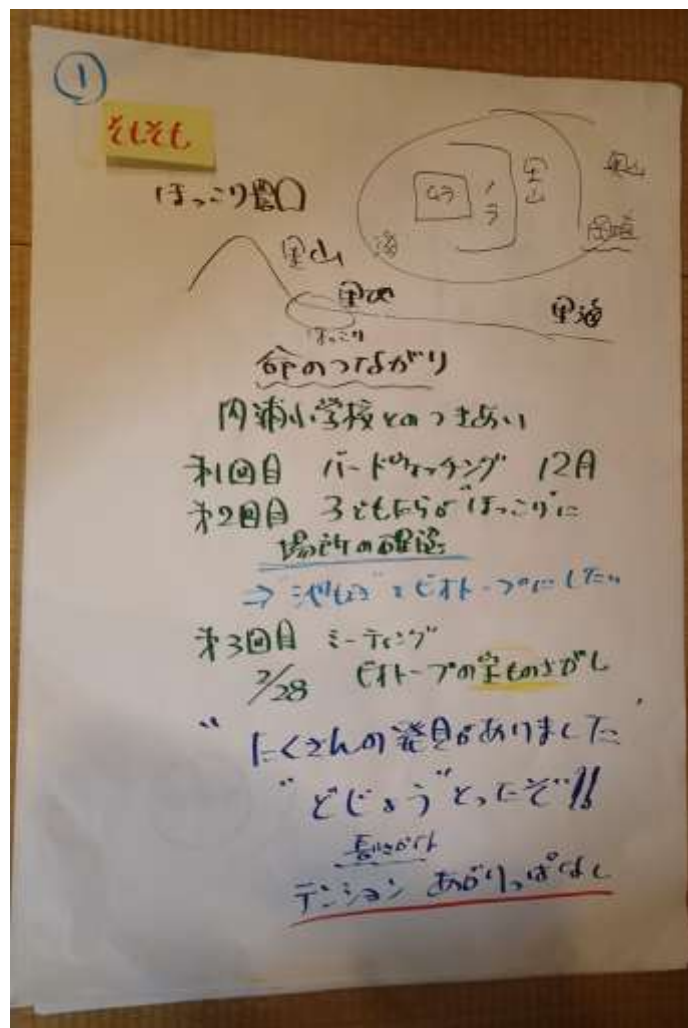 ①
そもそも
ほっこり農口
ムラ
ノラ
里山
奥山
海
里山
里地
里海
ほっこり
命のつながり
内浦小学校とのつきあい
第1回目 バードウォッチング 12月
第2回目 子どもたちが"ほっこり"に
場所の確認
⇒ ビオトープにしたい
第3回目 ミーティング
2/28 ビオトープの宝ものさがし
"たくさんの発見がありました
"どじょう"とったぞ!!
テンション あがりっぱなし